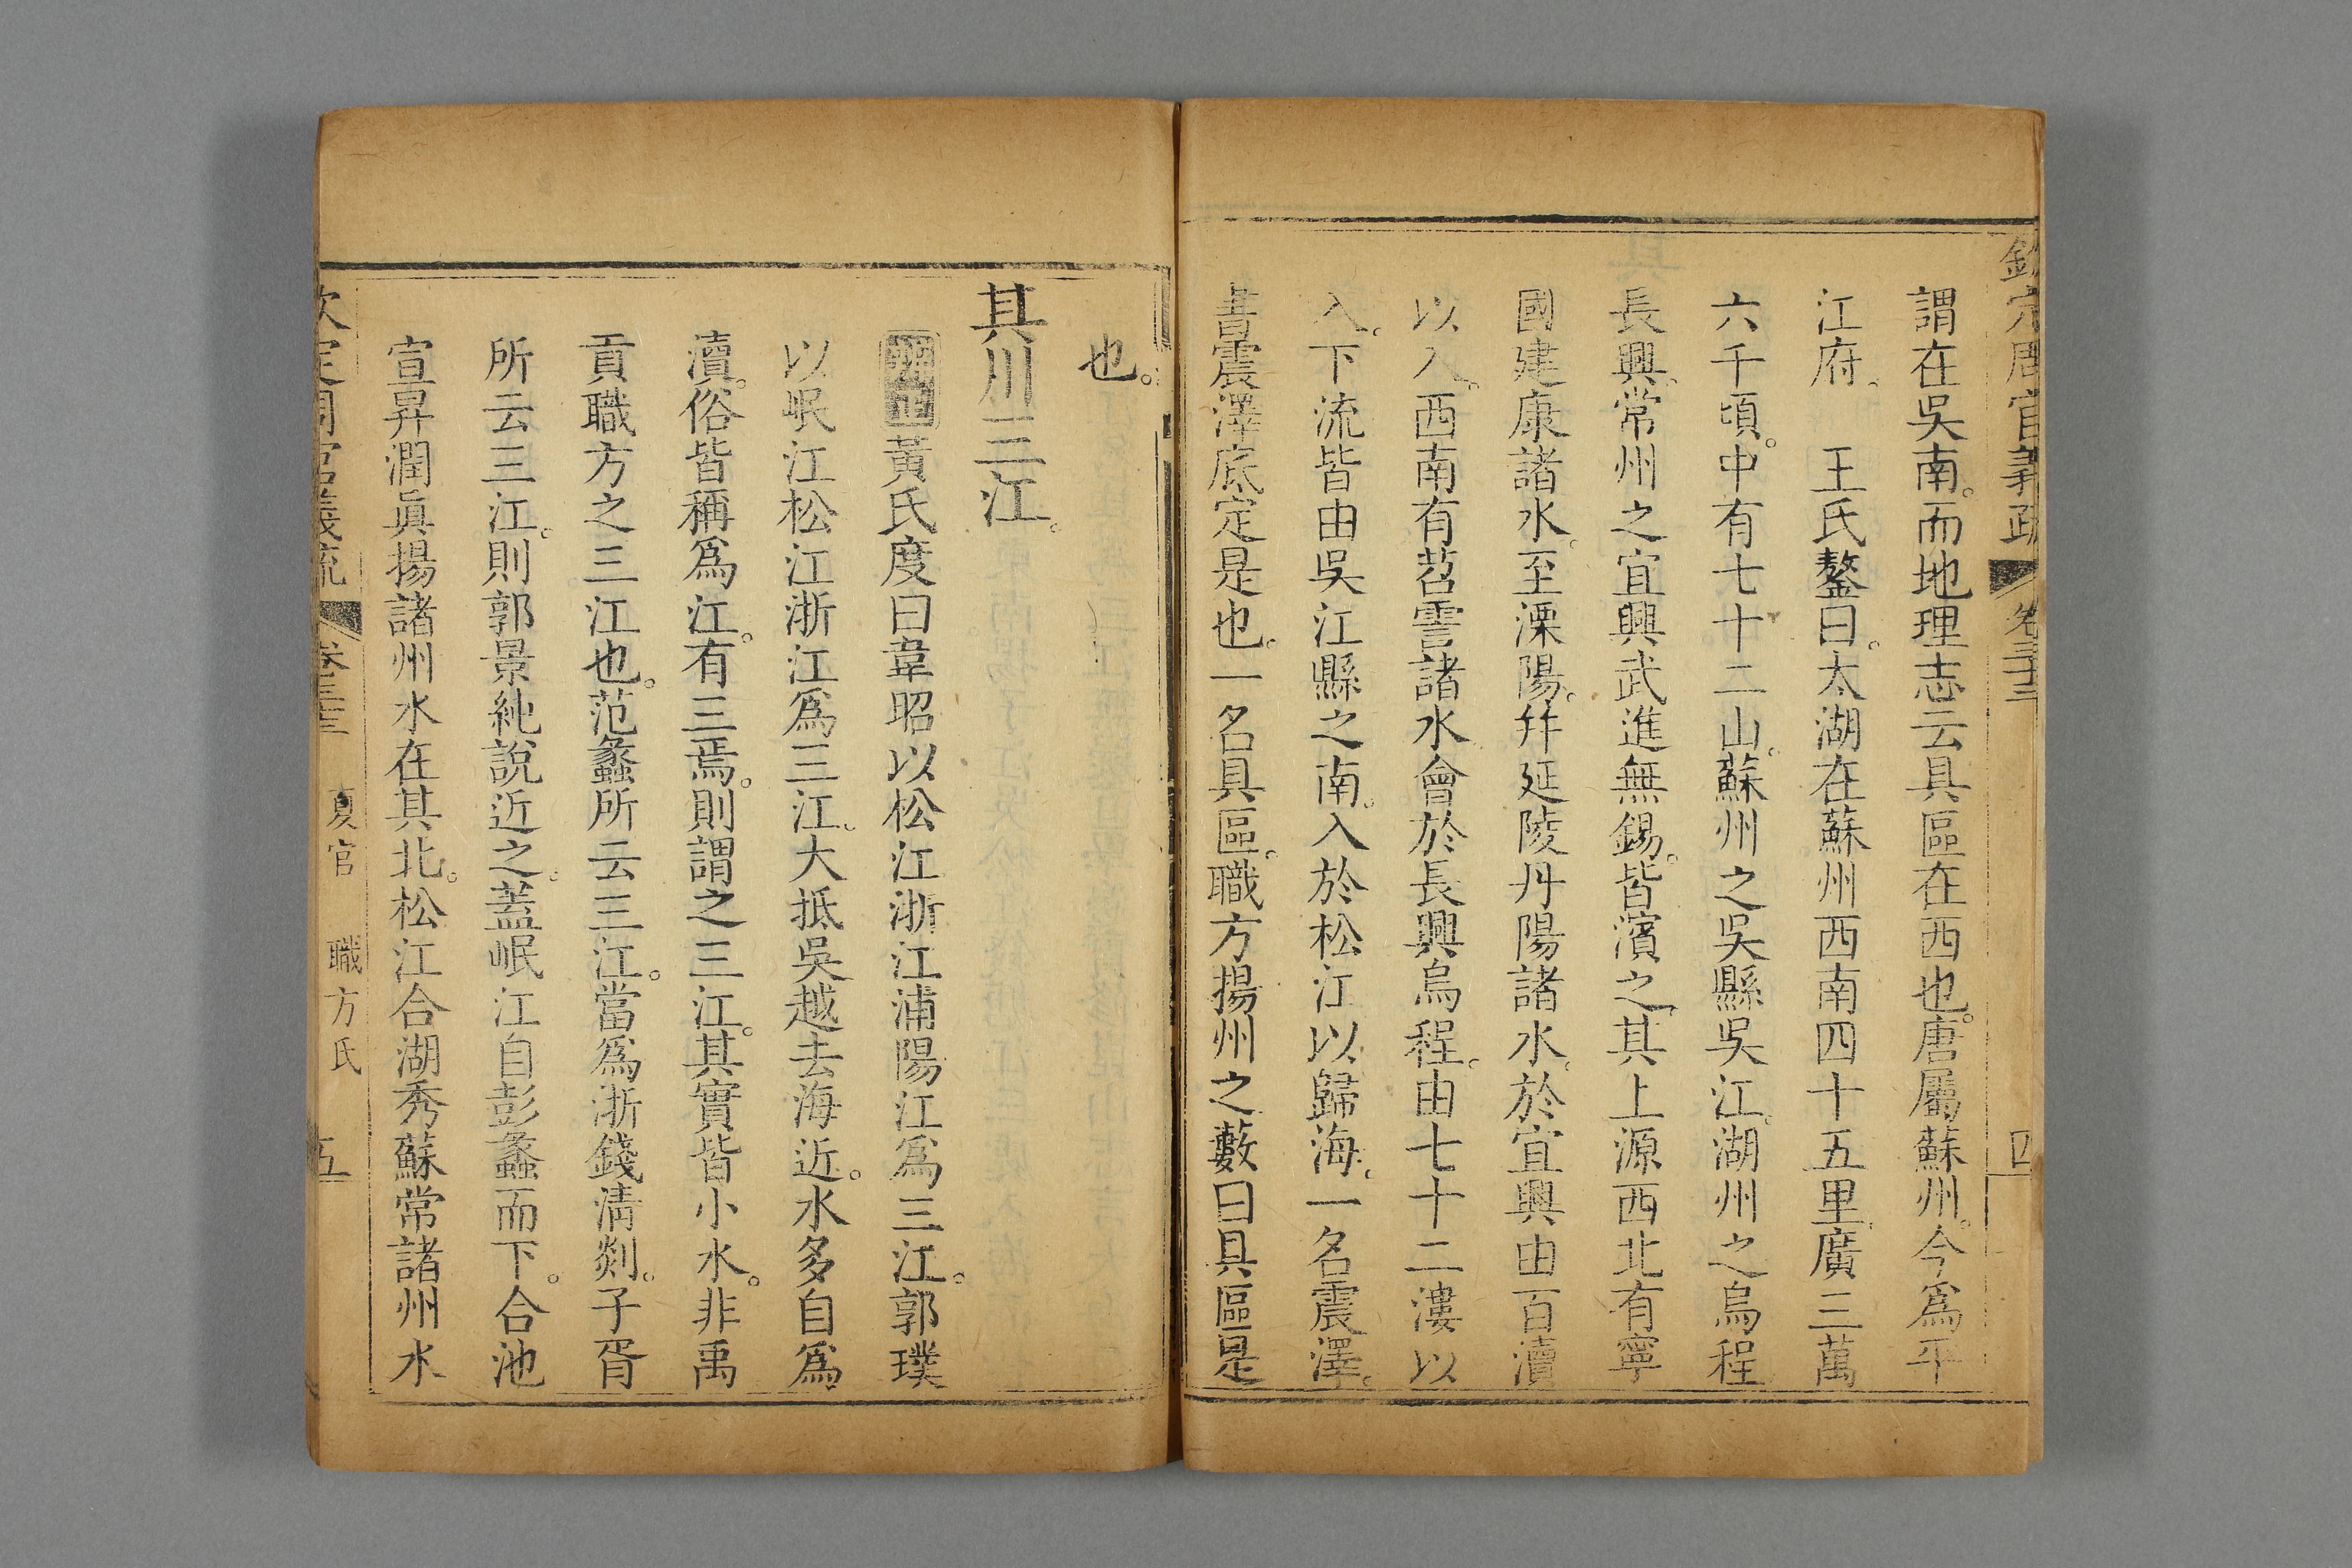 欽定周官義疏 卷三十三 四
謂在吳南。而地理志云具區在西也。唐屬蘇州。今爲平
江府。 王氏鏊曰。太湖在蘇州西南四十五里。廣三萬
六千頃。中有七十二山。蘇州之吳縣吳江。湖州之烏程
長興。常州之宜興武進無錫。皆濱之。其上源西北有寧
國建康諸水。至溧陽。幷延陵丹陽諸水。於宜興由百瀆
以入。西南有苕霅諸水會於長興烏程。由七十二漊以
入。下流皆由吳江縣之南。入於松江以歸海。一名震澤。
書震澤底定是也。一名具區。職方揚州之藪曰具區是
也。
其川三江。
黃氏度曰韋昭以松江浙江浦陽江爲三江。郭璞
以岷江松江浙江爲三江。大抵吳越去海近。水多自爲
瀆。俗皆稱爲江。有三焉。則謂之三江。其實皆小水。非禹
貢職方之三江也。范蠡所云三江。當爲浙錢清剡。子胥
所云三江。則郭景純說近之。蓋岷江自彭蠡而下。合池
宣昇潤眞揚諸州水在其北。松江合湖秀蘇常諸州水
欽定周官義疏 卷三十三 夏官 職方氏 五